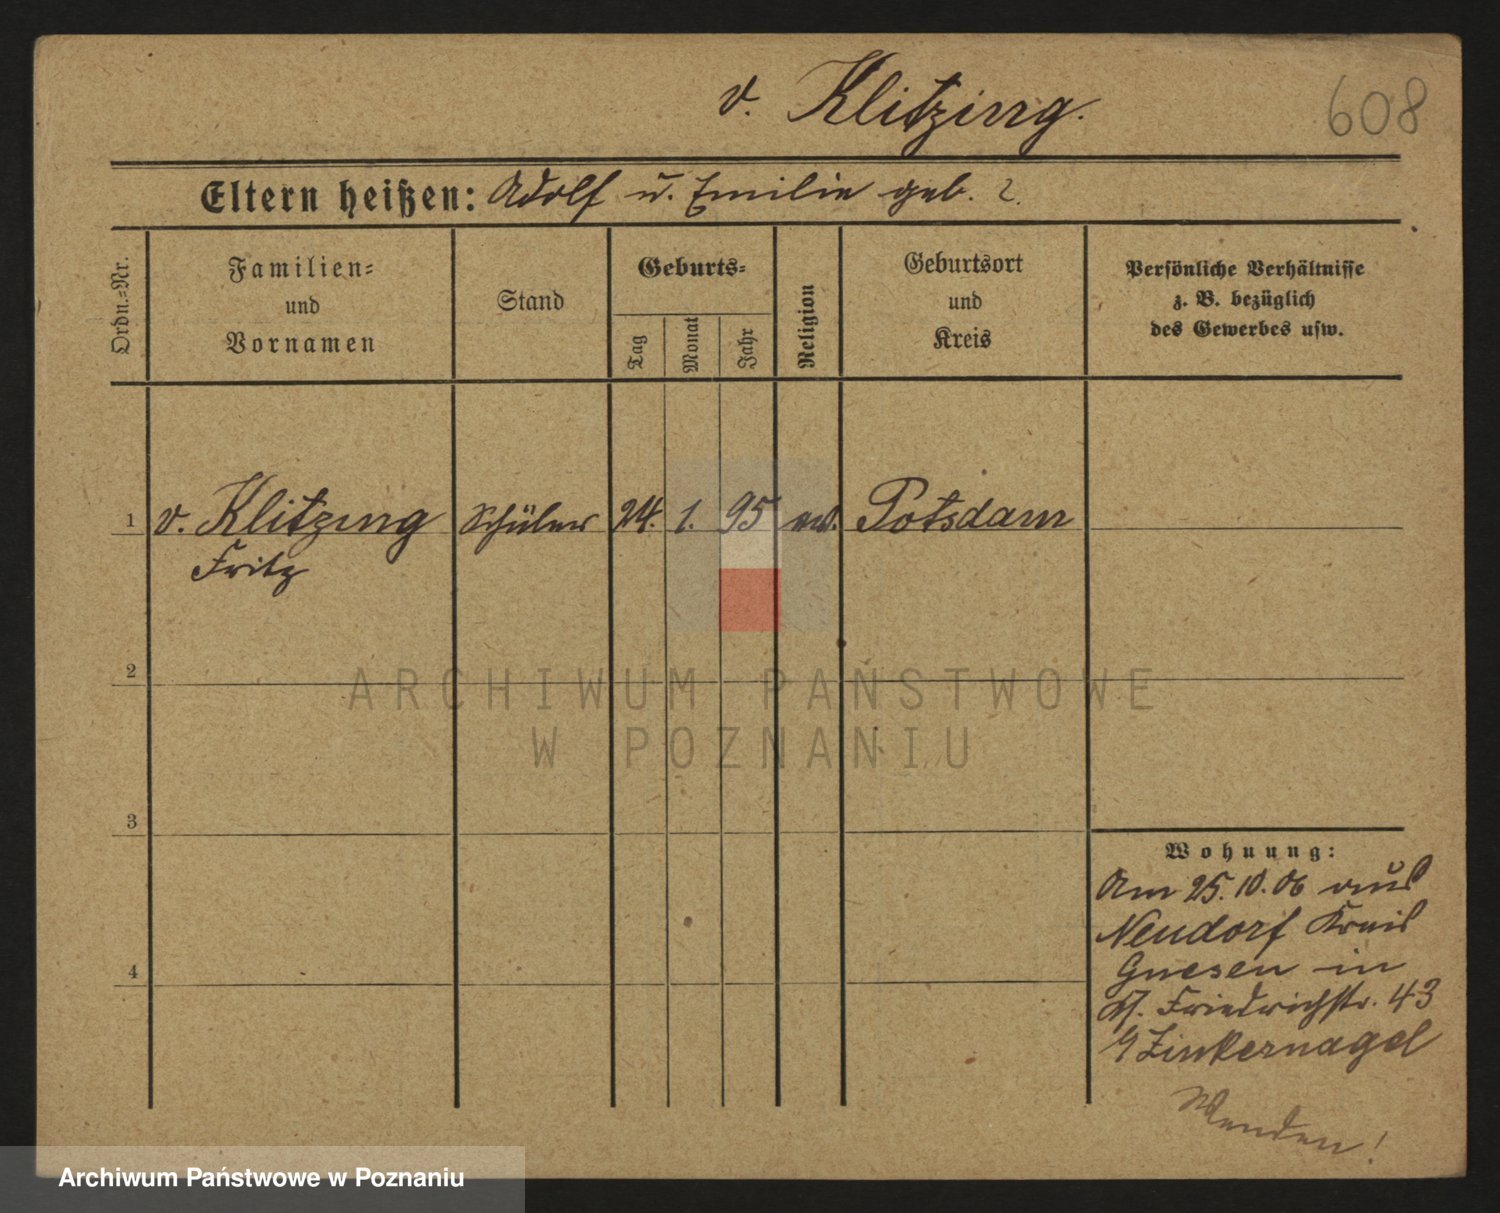 v. Klitzing.
608
Eltern heißen: Adolf u. Emilie geb. ?.
Ordn.=Nr.
Familien=
und
Vornamen
Stand
Geburts=
Tag
Monat
Jahr
Religion
Geburtsort
und
Kreis
Persönliche Verhältnisse
z. B. bezüglich
des Gewerbes usw.
1 v. Klitzing Schüler 24. 1. 95 ev. Potsdam
Fritz
2
ARCHIWUM PAŃSTWOWE
W POZNANIU
3
Wohnung:
Am 25.10.06 aus
Neudorf Kreis
4
Gnesen in
Friedrichstr. 43
Zinkernagel
Wenden!
Archiwum Państwowe w Poznaniu